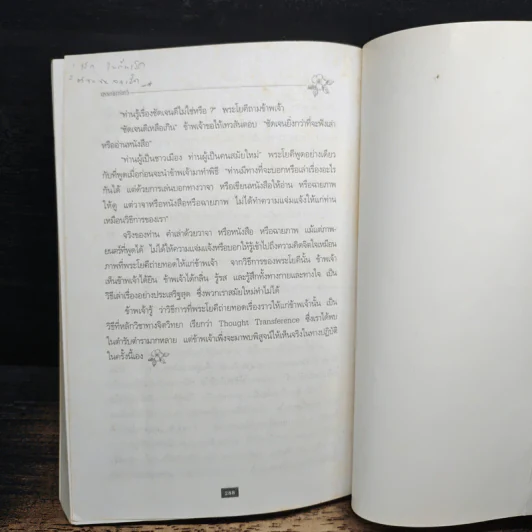 "ท่านรู้เรื่องชัดเจนดีไม่ใช่หรือ ?" พระโยคีถามข้าพเจ้า
"ชัดเจนดีเหลือเกิน" ข้าพเจ้าขอให้เทวสันตอบ "ชัดเจนยิ่งกว่าที่จะฟังเล่า
หรืออ่านหนังสือ"
"ท่านผู้เป็นชาวเมือง ท่านผู้เป็นคนสมัยใหม่" พระโยคีพูดอย่างเดียว
กับที่พูดเมื่อก่อนจะนำข้าพเจ้ามาทำพิธี "ท่านมีทางที่จะบอกหรือเล่าเรื่องอะไร
กันได้ แต่ด้วยการเล่นบอกทางวาจา หรือเขียนหนังสือให้อ่าน หรือฉายภาพ
ให้ดู แต่วาจาหรือหนังสือหรือฉายภาพ ไม่ได้ทำความแจ่มแจ้งให้แก่ท่าน
เหมือนวิธีการของเรา"
จริงของท่าน คำเล่าด้วยวาจา หรือหนังสือ หรือฉายภาพ แม้แต่ภาพ-
ยนตร์ที่พูดได้ ไม่ได้ให้ความแจ่มแจ้งหรือบอกให้รู้เข้าไปถึงความคิดจิตใจเหมือน
ภาพที่พระโยคีถ่ายทอดให้แก่ข้าพเจ้า จากวิธีการของพระโยคีนั้น ข้าพเจ้า
เห็นข้าพเจ้าได้ยิน ข้าพเจ้าได้กลิ่น รู้รส และรู้สึกทั้งทางกายและทางใจ เป็น
วิธีเล่าเรื่องอย่างประเสริฐสุด ซึ่งพวกเราสมัยใหม่ทำไม่ได้
ข้าพเจ้ารู้ ว่าวิธีการที่พระโยคีถ่ายทอดเรื่องราวให้แก่ข้าพเจ้านั้น เป็น
วิธีที่หลักวิชาทางจิตวิทยา เรียกว่า Thought Transference ซึ่งเราได้พบ
ในตำรับตำรามากหลาย แต่ข้าพเจ้าเพิ่งจะมาพบพิสูจน์ให้เห็นจริงในทางปฏิบัติ
ในครั้งนี้เอง
288